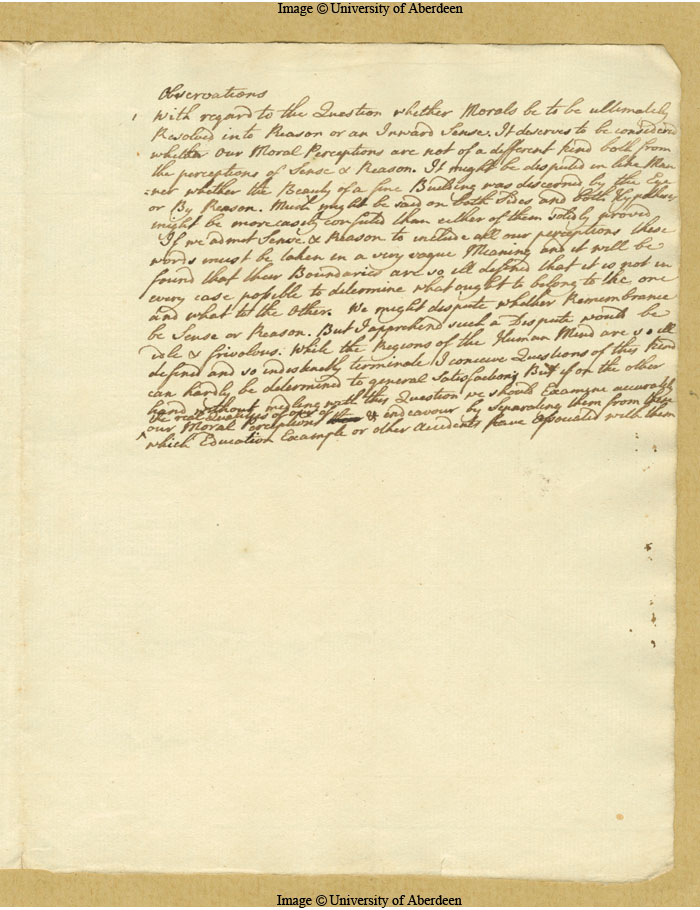 Image © University of Aberdeen
Observations
1 With regard to the Question whether Morals be to be ultimately
Resolved into Reason or an Inward Sense. It deserves to be considered
whether our Moral Perceptions are not of a different kind both from
the perceptions of Sense & Reason. It might be disputed in like Man
=ner whether the Beauty of a fine Building was discerned by the Eye
or By Reason. Much might be said on both Sides and both Hypotheses
might be more easily confuted than either of them solidly proved
If we admit Sense & Reason to include all our perceptions these
words must be taken in a very vague Meaning and it will be
found that their Boundaries are so ill defined that it is not in
every case possible to determine what ought to belong to the one
and what to the Other. We might dispute whether Remembrance
be Sense or Reason. But I apprehend such a Dispute would be
idle & frivolous. While the Regions of the Human Mind are so ill
defined and so indistinctly terminate I conceive Questions of this kind
can hardly be determined to general Satisfaction. But if on the other
hand without medling with this Question we should Examyne accurately
the real Qualitys of
our Moral Perceptions & endeavour by separating them from these
which Education Example or other Accidents have associated with them
Image © University of Aberdeen